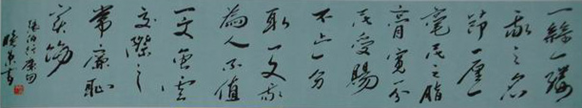 一絲一縷
我之名
節一厘一
毫民之脂
膏寬一分
民受賜
不止一分
取一文我
為人不值
一文誰云
交際之
常廉恥
實傷